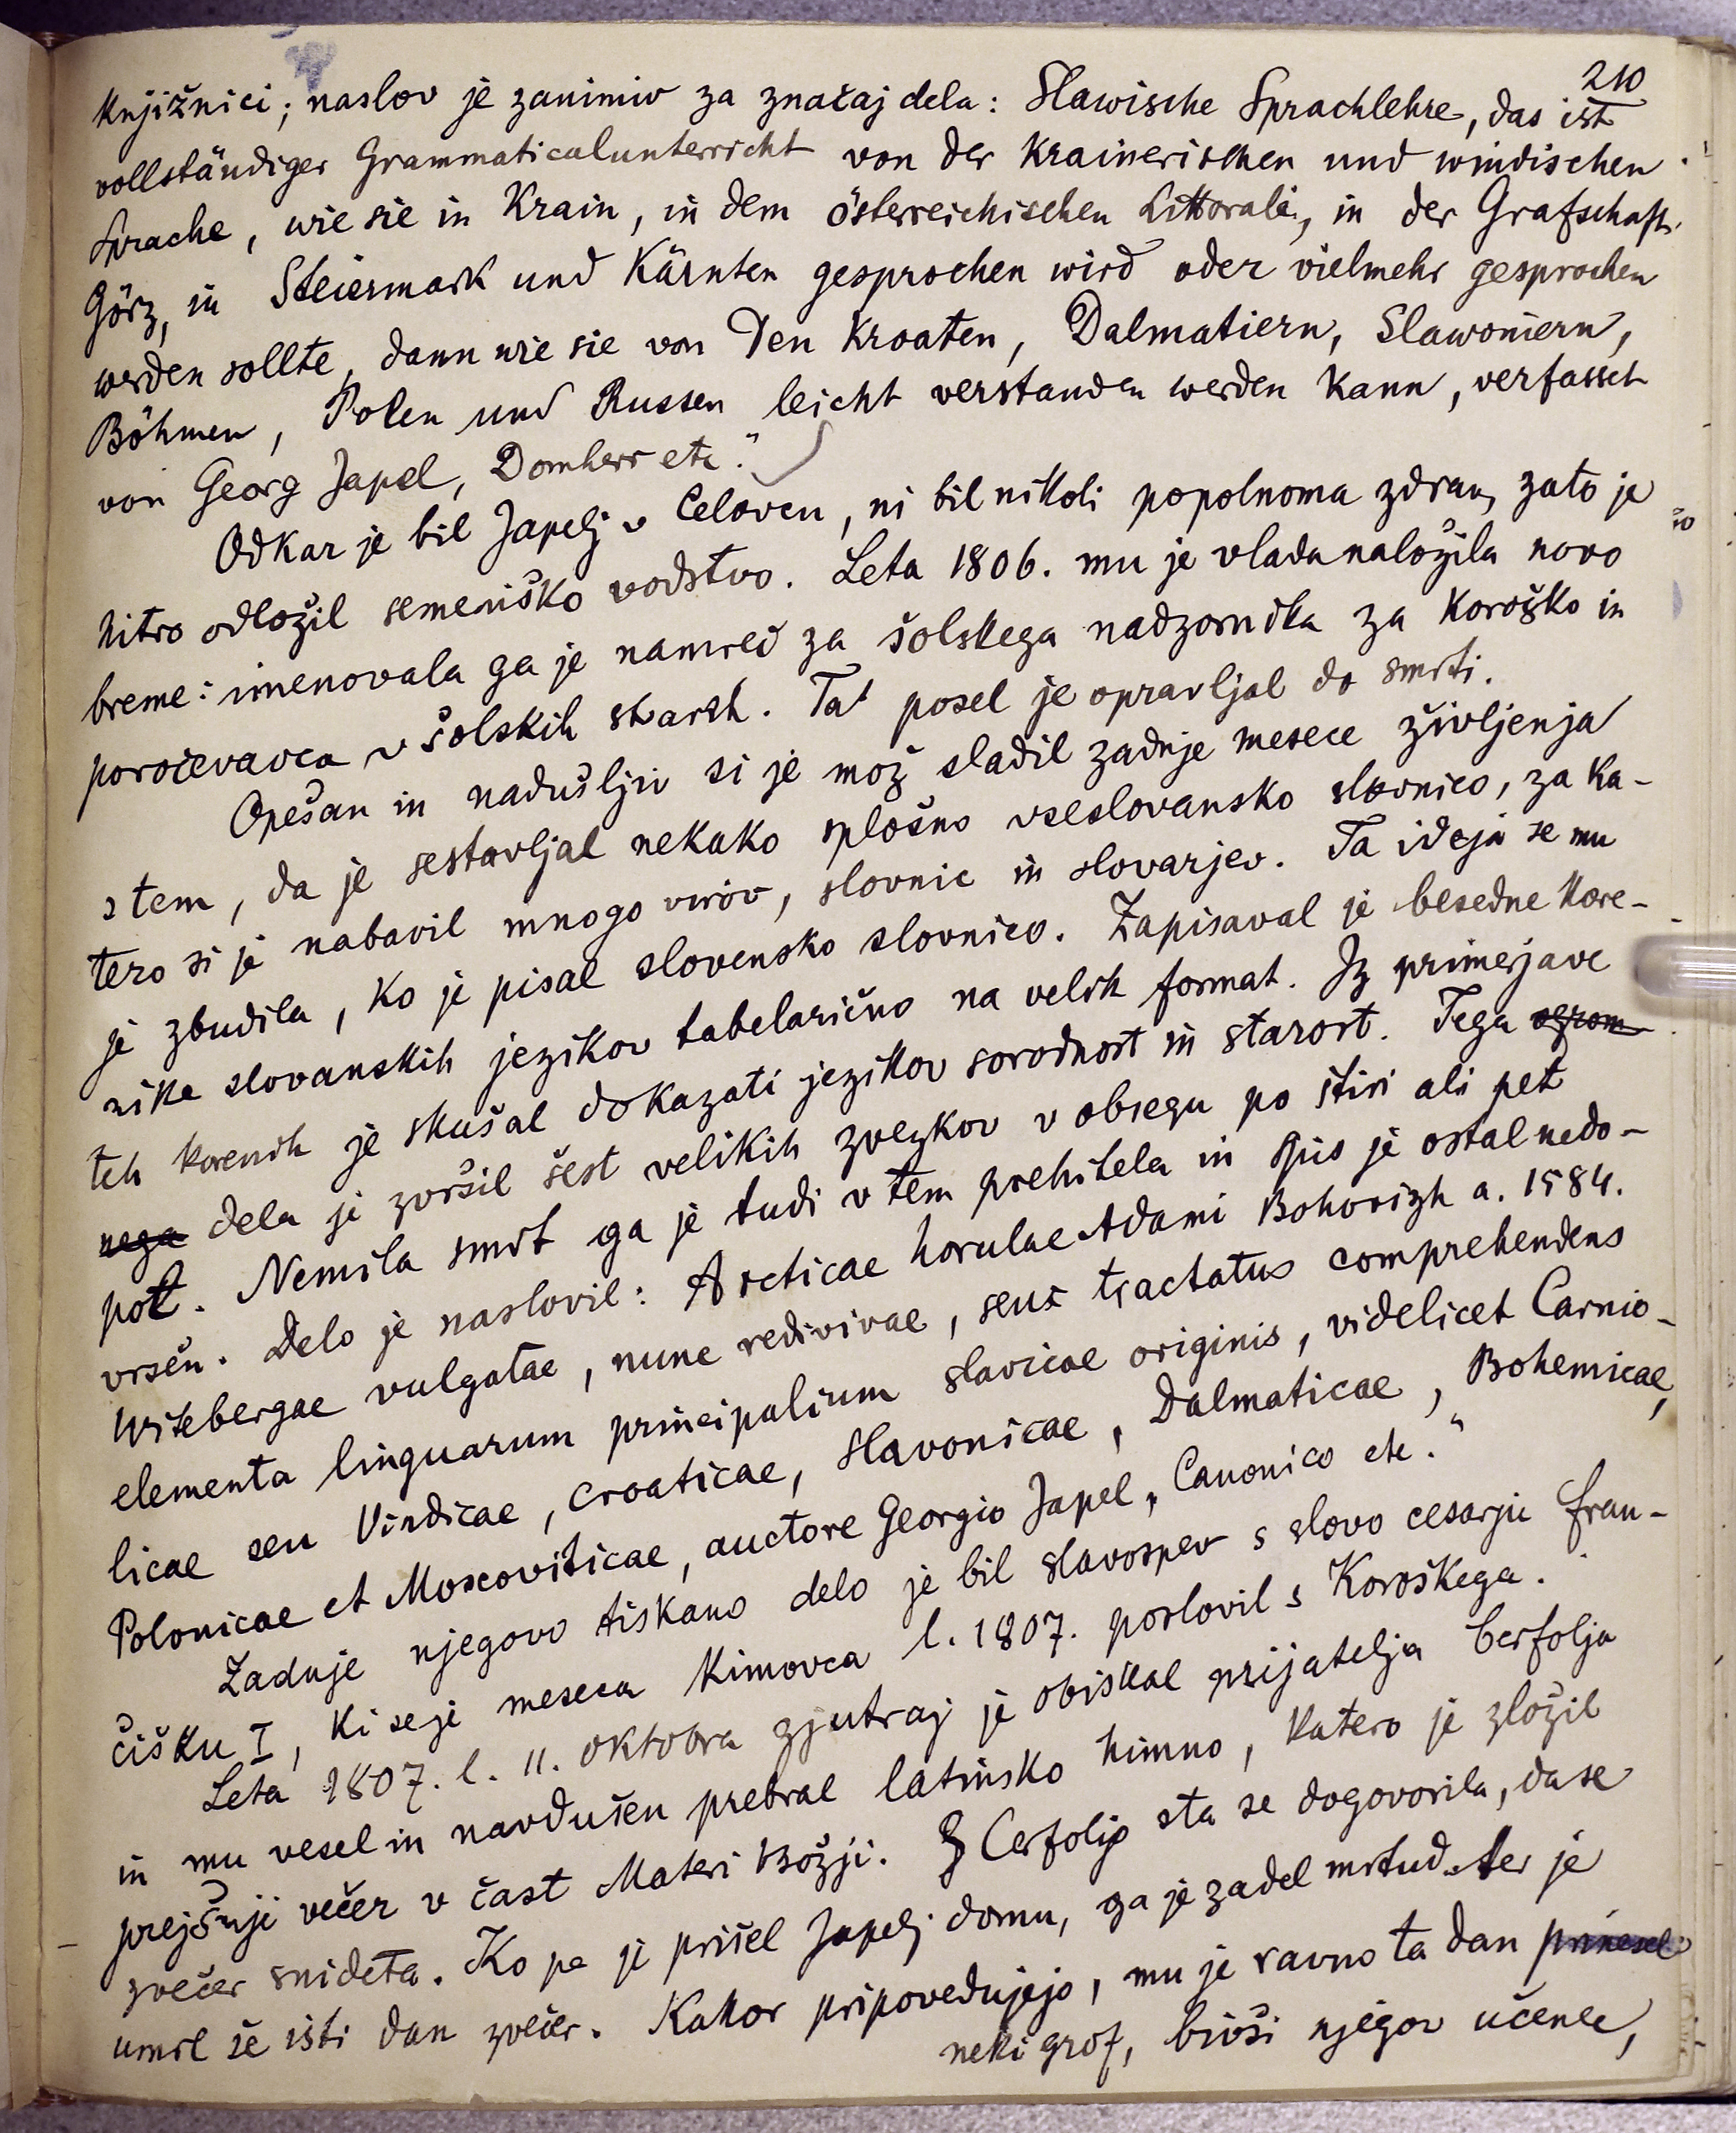 210
knjižnici; naslov je zanimiv za značaj dela: Slawische Sprachlehre, das ist
vollständiger Grammaticalunterricht von der krainerischen und windischen
Sprache, wie sie in Krain, in dem österreichischen Littorale, in der Grafschaft
Görz, in Steiermark und Kärnten gesprochen wird oder vielmehr gesprochen
werden sollte, dann wie sie von den Kroaten, Dalmatiern, Slawoniern,
Böhmen, Polen und Russen leicht verstanden werden kann, verfasset
von Georg Japel, Domherr etc."
Odkar je bil Japelj v Celovcu, ni bil nikoli popolnoma zdrav, zato je
hitro odložil semeniško vodstvo. Leta 1806. mu je vlada naložila novo
breme: imenovala ga je namreč za šolskega nadzornika za Koroško in
poročevavca v šolskih stvareh. Ta posel je opravljal do smrti.
Opešan in nadušljiv si je mož sladil zadnje mesece življenja
s tem, da je sestavljal nekako splošno vseslovansko slovnico, za ka-
tero si je nabavil mnogo virov, slovnic in slovarjev. Ta ideja se mu
je zbudila, ko je pisal slovensko slovnico. Zapisaval je besedne kore-
nike slovanskih jezikov tabelarično na velik format. Iz primerjave
teh korenik je skušal dokazati jezikov sorodnost in starost. Tega ogrom-
nega dela je zvršil šest velikih zvezkov v obsegu po štiri ali pet
pot. Nemila smrt ga je tudi v tem prehitela in spis je ostal nedo-
vršen. Delo je naslovil: Arcticae horulae Adami Bohorizh a. 1584.
Witebergae vulgatae, nunc redivivae, seu tractatus comprehendens
elementa linguarum principalium slavicae originis, videlicet Carnio-
licae seu Vindicae, Croaticae, Slavonicae, Dalmaticae, Bohemicae,
Polonicae et Moscoviticae, auctore Georgio Japel, Canonico etc."
Zadnje njegovo tiskano delo je bil slavospev s slovo cesarju Fran-
čišku I, ki se je meseca kimovca l. 1807. poslovil s Koroškega.
Leta 1807. l. 11. oktobra zjutraj je obiskal prijatelja Cerfolja
in mu vesel in navdušen prebral latinsko himno, katero je zložil
prejšnji večer v čast Materi Božji. S Cerfoljo sta se dogovorila, da se
zvečer snideta. Ko pa je prišel Japelj domu, ga je zadel mrtud ter je
umrl še isti dan zvečer. Kakor pripovedujejo, mu je ravno ta dan prinesel
neki grof, bivši njegov učenec,